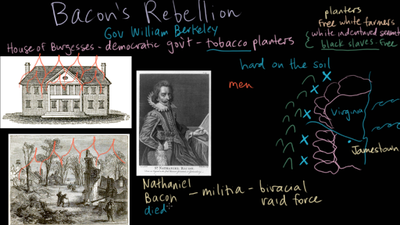 Bacon's Rebellion
Gov William Berkeley
House of Burgesses - democratic gov't - tobacco planters
planters
free white farmers
white indentured servants
black slaves. free
hard on the soil
men
Virginia
Jamestown
Nathaniel
Bacon
died:
- militia - biracial
raid force